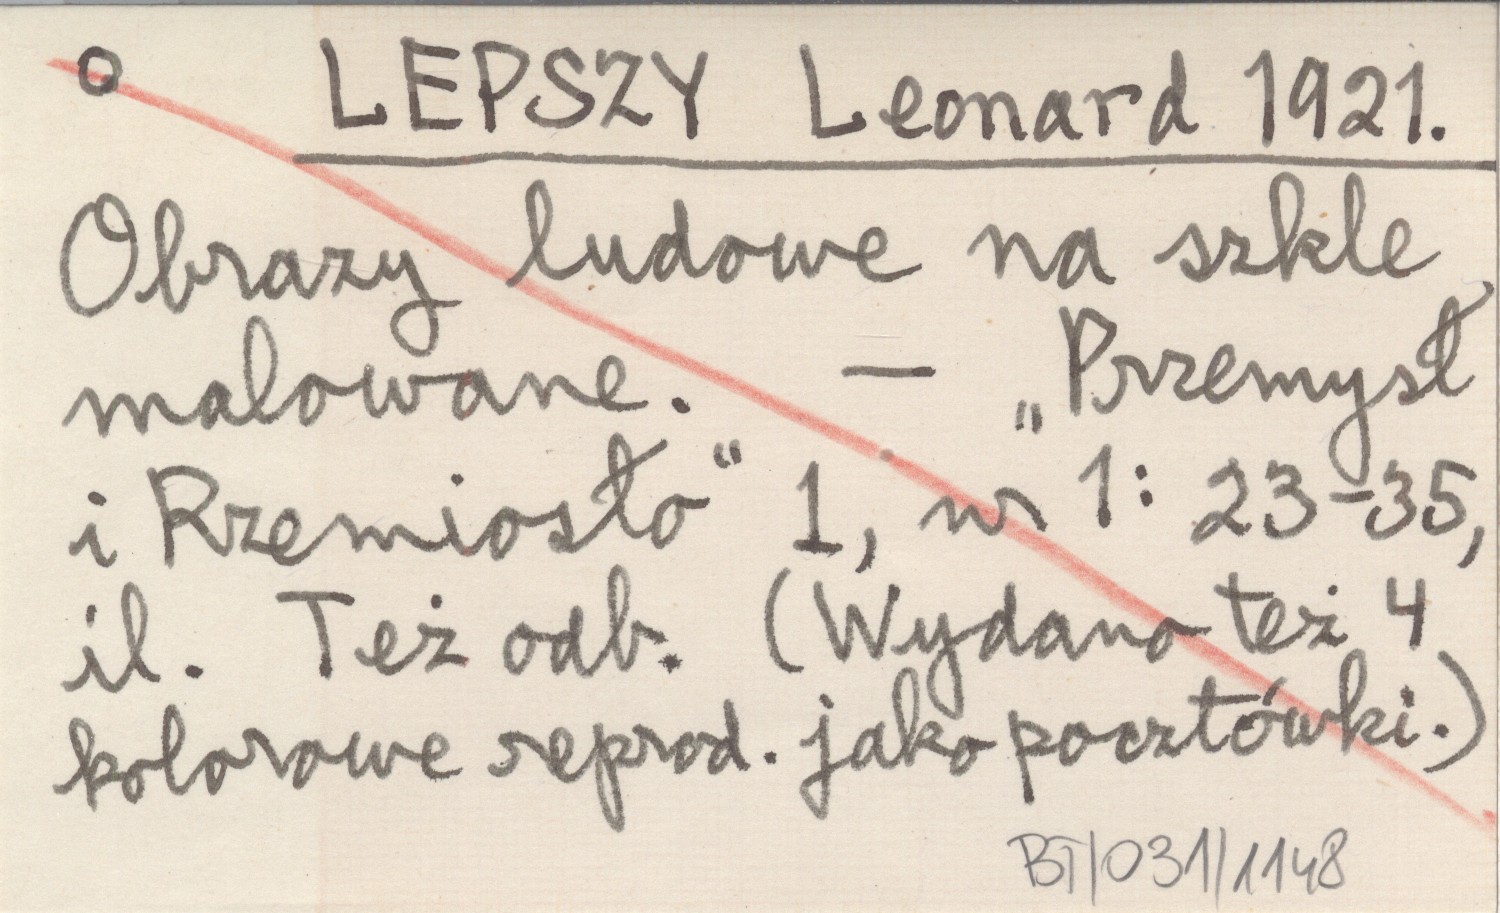 o LEPSZY Leonard 1921.
Obrazy ludowe na szkle
malowane. — „Przemysł
i Rzemiosło“ 1, nr 1: 23-35,
il. Też odb. (Wydano też 4
kolorowe reprod. jako pocztówki.)
BT/031/1148